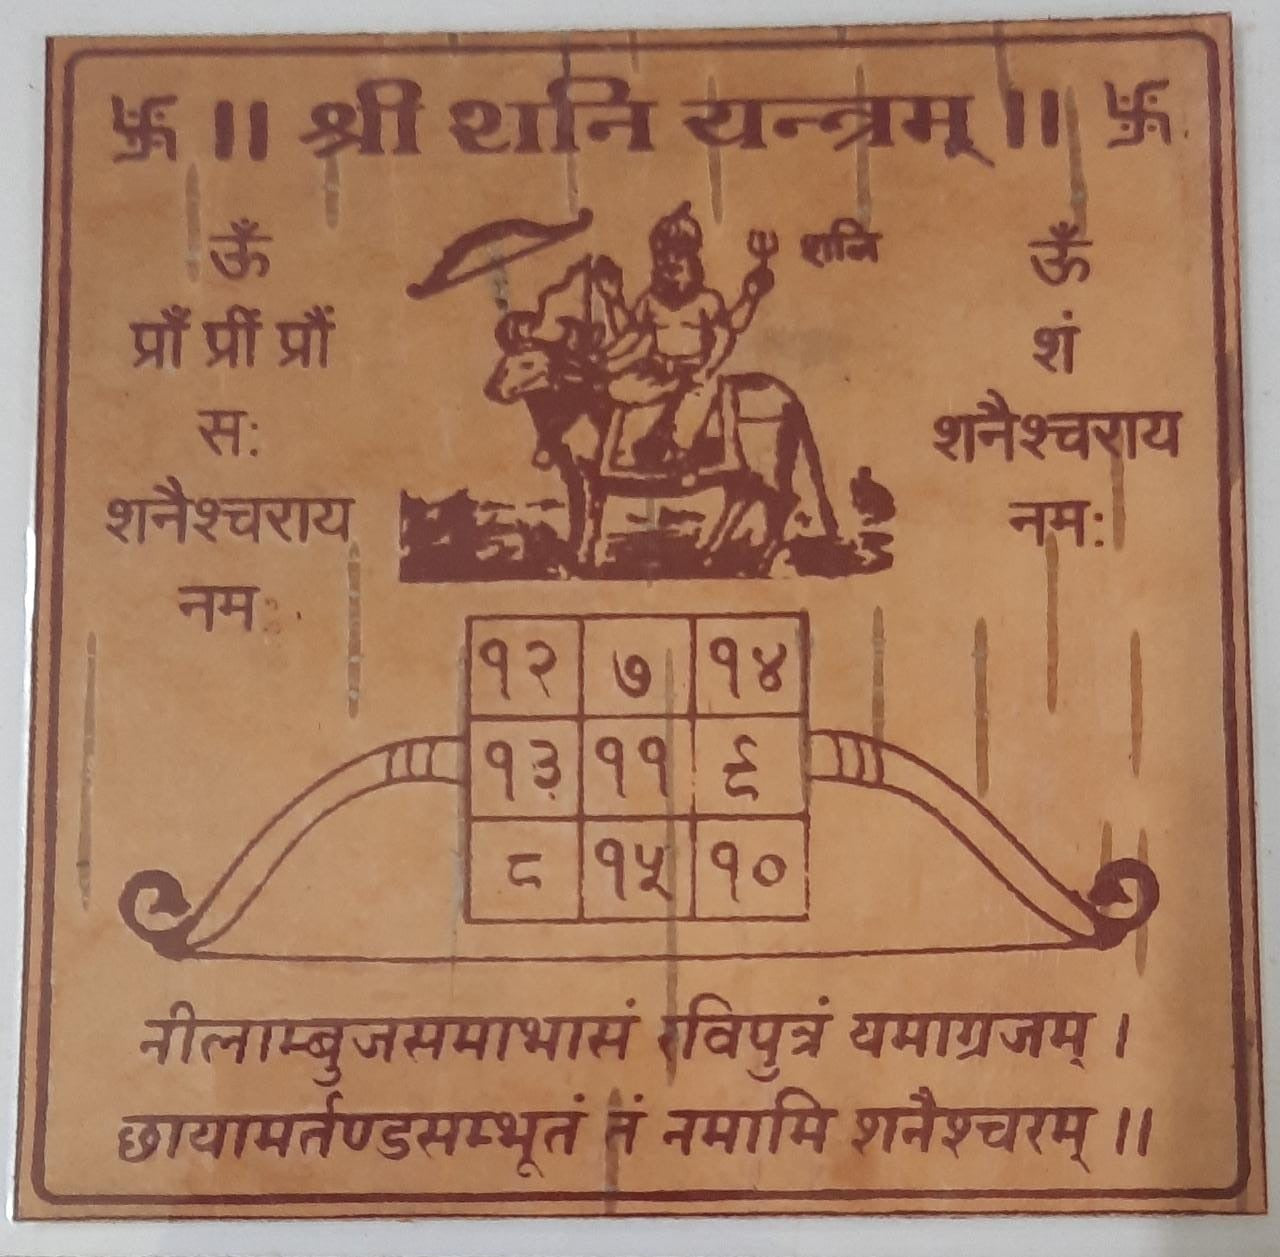 卐 ॥ श्री शनि यन्त्रम् ॥ 卐
ऊँ
प्राँ प्रीं प्रौं
सः
शनैश्चराय
नमः
शनि
ऊँ
शं
शनैश्चराय
नमः
१२ ७ १४
१३ ११ ९
८ १५ १०
नीलाम्बुजसमाभासं रविपुत्रं यमाग्रजम् ।
छायामर्तण्डसम्भूतं तं नमामि शनैश्चरम् ॥